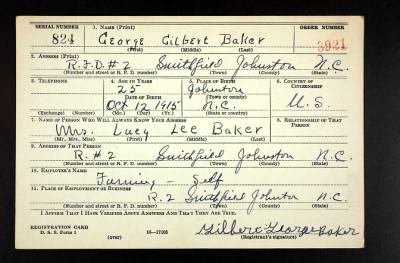 SERIAL NUMBER 1. NAME (Print) ORDER NUMBER
824 George Gilbert Baker 3921
(First) (Middle) (Last)
2. ADDRESS (Print)
R.F.D. # 2 Smithfield Johnston N.C.
(Number and street or R. F. D. number) (Town) (County) (State)
3. TELEPHONE 4. AGE IN YEARS 5. PLACE OF BIRTH 6. COUNTRY OF CITIZENSHIP
25 Johnston
DATE OF BIRTH (Town or county)
Oct 12 1915 N.C. U.S.
(Exchange) (Number) (Mo.) (Day) (Yr.) (State or country)
7. NAME OF PERSON WHO WILL ALWAYS KNOW YOUR ADDRESS 8. RELATIONSHIP OF THAT PERSON
Mrs. Lucy Lee Baker
(Mr., Mrs., Miss) (First) (Middle) (Last)
9. ADDRESS OF THAT PERSON
R. # 2 Smithfield Johnston N.C.
(Number and street or R. F. D. number) (Town) (County) (State)
10. EMPLOYER'S NAME
Farming - Self
11. PLACE OF EMPLOYMENT OR BUSINESS
R. 2 Smithfield Johnston N.C.
(Number and street or R. F. D. number) (Town) (County) (State)
I AFFIRM THAT I HAVE VERIFIED ABOVE ANSWERS AND THAT THEY ARE TRUE.
REGISTRATION CARD
D. S. S. Form 1 (over) 16-17105
Gilbert George Baker
(Registrant's signature)